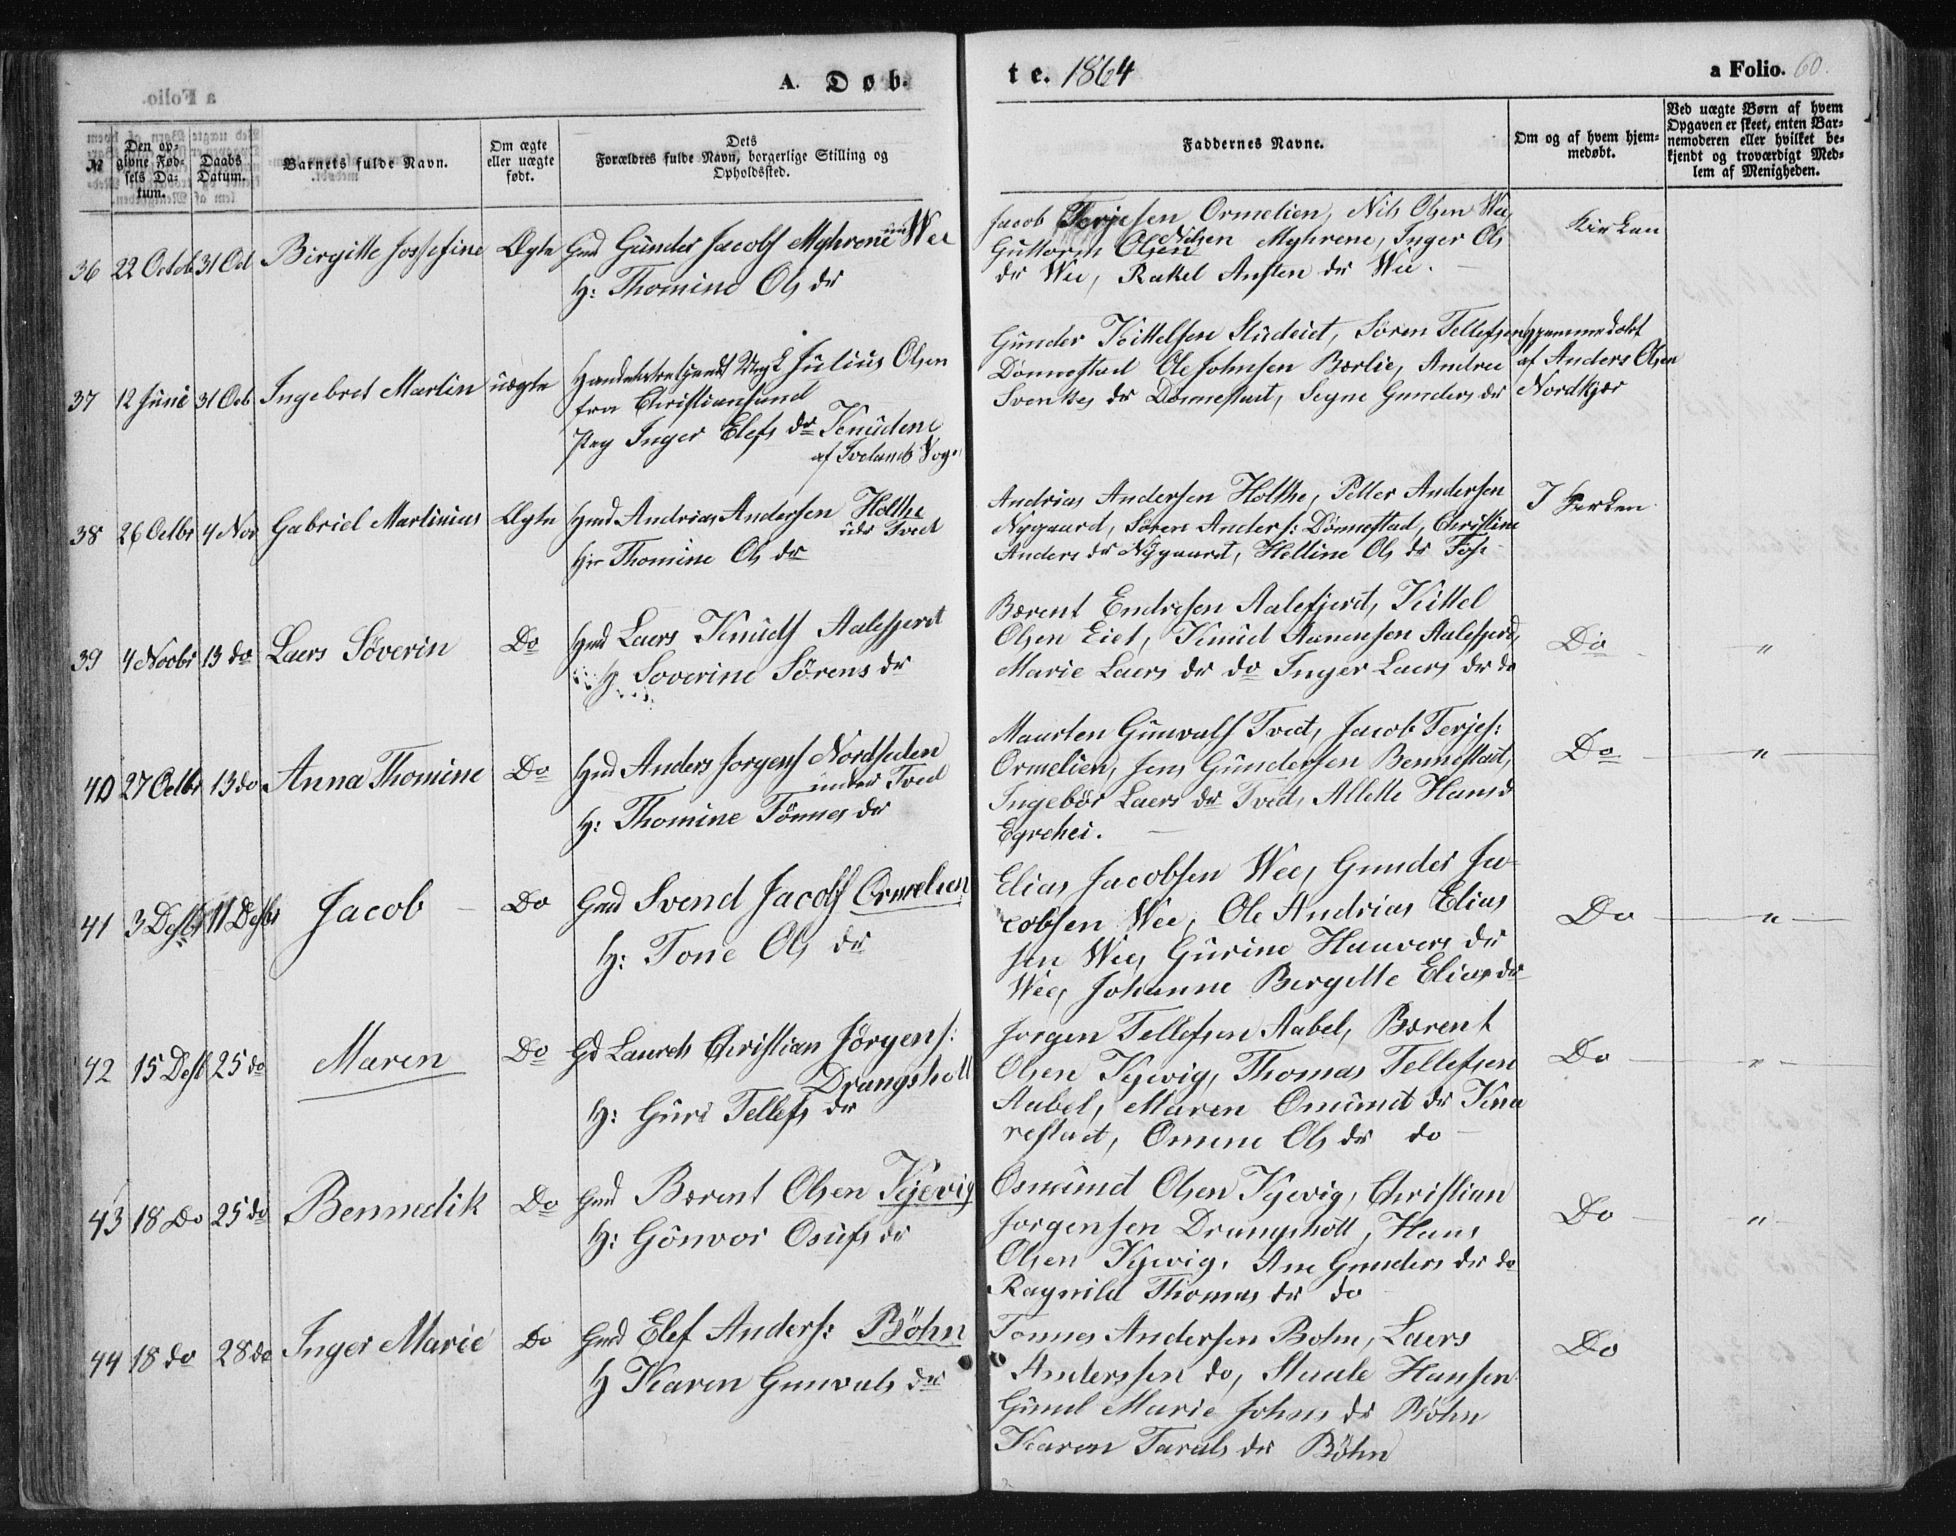 A. Døb-
te. 1864
a Folio. 60.
№
Den op-
givne Fød-
sels Da-
tum.
Daabs
Datum.
Barnets fulde Navn.
Om ægte
eller uægte
født.
Dets
Forældres fulde Navn, borgerlige Stilling og
Opholdssted.
Faddernes Navne.
Om og af hvem hjem-
medøbt.
Ved uægte Børn af hvem
Opgaven er skeet, enten Bar-
nemoderen eller hvilket be-
kjendt og troværdigt Med-
lem af Menigheden.
36 22 Octob 31 Oct Birgitte Josefine Ægte Gmd Gunder Jacobs Myhrene un Wee
H: Thomine Ols dr
Jacob Terjesen Ormelien, Nils Olsen Wee,
Guttorm Olsen Nilsen Myhrene, Inger Ols
dr Wee, Rakel Ansten dr Wee.
Kirken
37 12 Juni 31 Octb Ingebret Martin uægte Handelsbetjendt Ungk Julius Olsen
fra Christiansund
Pég Inger Elefs dr Knudene
af Ivelands Sogn
Gunder Kittelsen Studeiet, Søren Tellefsen
Dønnestad Ole Johnsen Bærlie, Andrea
Svenkes dr Dønnestad, Segne Gunders dr
Hjemmedøbt
af Anders Olsen
Nordkjær
38 26 Octbr 4 Nov Gabriel Martinius Ægte Hmd Andrias Andersen Holthe
udr Tvedt
Hr Thomine Ols dr
Andrias Andersen Holthe, Petter Andersen
Nygaard, Søren Anders: Dønnestad, Christine
Anders dr Nygaard, Helline Ols dr Fos
I Kerken
39 4 Novbr 13 do Laers Söverin Do Hmd Laers Knuds Aalefjerd
H Soverine Sörens dr
Bærent Endresen Aalefjerd, Kittel
Olsen Eiet, Knud Aanensen Aalefjerd,
Marie Laers dr do Inger Laers dr do
Do "
40 27 Octbr 13 do Anna Thomine Do Hmd Anders Jorgens Nordheden
under Tved
H: Thomine Tönnes dr
Maarten Gunvalds Tved, Jacob Terjes:
Ormelien, Jens Gundersen Bennestad,
Ingebör Laers dr Tved, Allette Hansd
Egrehei.
Do "
41 3 Desbr 11 Desbr Jacob Do Gmd Svend Jacobs Ormelien
H: Tone Ols dr
Elias Jacobsen Wee, Gunder Ja-
cobsen Wee, Ole Andrias Elias
sen Wee, Gurine Hauvors dr
Wee, Johanne Bergitte Elias dr
Do "
42 15 Desb 25 do Maren Do Gd Laurets Christian Jörgens:
Drangsholt
H: Guri Tellefs dr
Jorgen Tellefsen Aabel, Bærent
Olsen Kjevig, Thomas Tellefsen
Aabel, Maren Omund dr Kna
restad, Omme Ols dr do
Do "
43 18 Do 25 do Bennedik Do Gmd Bærent Olsen Kjevig
H: Gönvor Osufs dr
Osmund Olsen Kjevig, Christian
Jorgensen Drangsholt, Hans
Olsen Kjevig, Ane Gunders dr do
Ragnild Thomas dr do
Do "
44 18 do 28 do Inger Marie Do Gmd Elef Anders: Böhn
H Karen Gunvals dr
Tønnes Andersen Bohn, Laers
Anderssen do, Staale Hansen
Gunil Marie Johns dr Böhn
Karen Tarals dr Böhn
Do